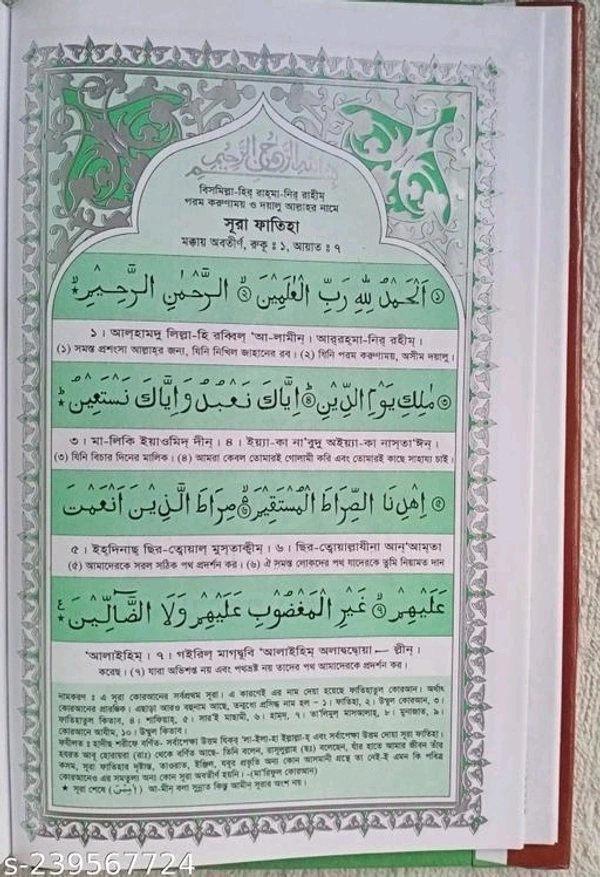 بسم الله الرحمن الرحيم
বিসমিল্লা-হির্ রাহ্মা-নির্ রাহীম্
পরম করুণাময় ও দয়ালু আল্লাহর নামে
সূরা ফাতিহা
মক্কায় অবতীর্ণ, রুকূ : ১, আয়াত : ৭
① اَلْحَمْدُ لِلّٰهِ رَبِّ الْعٰلَمِيْنَ ② الرَّحْمٰنِ الرَّحِيْمِ
১। আল্হামদু লিল্লা-হি রব্বিল্ 'আ-লামীন্। আর্রহ্মা-নির্ রহীম্।
(১) সমস্ত প্রশংসা আল্লাহর জন্য, যিনি নিখিল জাহানের রব। (২) যিনি পরম করুণাময়, অসীম দয়ালু।
③ مٰلِكِ يَوْمِ الدِّيْنِ ④ اِيَّاكَ نَعْبُدُ وَاِيَّاكَ نَسْتَعِيْنُ
৩। মা-লিকি ইয়াওমিদ্ দীন্। ৪। ইয়্যা-কা না'বুদু অইয়্যা-কা নাস্তা'ঈন্।
(৩) যিনি বিচার দিনের মালিক। (৪) আমরা কেবল তোমারই গোলামী করি এবং তোমারই কাছে সাহায্য চাই।
⑤ اِهْدِنَا الصِّرَاطَ الْمُسْتَقِيْمَ ⑥ صِرَاطَ الَّذِيْنَ اَنْعَمْتَ
৫। ইহ্দিনাছ্ ছির-ত্বোয়াল্ মুস্তাকীম্। ৬। ছির-ত্বোয়াল্লাযীনা আন্'আম্তা
(৫) আমাদেরকে সরল সঠিক পথ প্রদর্শন কর। (৬) ঐ সমস্ত লোকদের পথ যাদেরকে তুমি নিয়ামত দান
عَلَيْهِمْ ⑦ غَيْرِ الْمَغْضُوْبِ عَلَيْهِمْ وَلَا الضَّآلِّيْنَ
'আলাইহিম্। ৭। গইরিল্ মাগদ্বুবি 'আলাইহিম্ অলাদ্বদ্বোয়া — ল্লীন্।
করেছ। (৭) যারা অভিশপ্ত নয় এবং পথভ্রষ্ট নয় তাদের পথ আমাদেরকে প্রদর্শন কর।
নামকরণ : এ সূরা কোরআনের সর্বপ্রথম সূরা। এ কারণেই এর নাম দেয়া হয়েছে ফাতিহাতুল কোরআন। অর্থাৎ
কোরআনের প্রারম্ভিক। এছাড়া আরও বহুনাম আছে, তন্মধ্যে প্রসিদ্ধ নাম হল - ১। ফাতিহা, ২। উম্মুল কোরআন, ৩।
ফাতিহাতুল কিতাব, ৪। শাফিয়াহ্, ৫। সাব'ই মাছানী, ৬। হাম্স, ৭। তা'লিমুল্ মাসআলাহ্, ৮। মুনাজাত, ৯।
কোরআনে আযীম, ১০। উম্মুল কিতাব।
ফযীলত : হাদীছ শরীফে বর্ণিত- সর্বাপেক্ষা উত্তম যিক্র 'লা-ইলা-হা ইল্লাল্লা-হ্ এবং সর্বাপেক্ষা উত্তম দোয়া সূরা ফাতিহা।
হযরত আবূ হোরায়রা (রাঃ) থেকে বর্ণিত আছে- তিনি বলেন, রাসূলুল্লাহ্ (ছঃ) বলেছেন, যাঁর হাতে আমার জীবন তাঁর
কসম, সূরা ফাতিহার দৃষ্টান্ত, তাওরাত, ইঞ্জিল, যবূর প্রভৃতি অন্য কোন আসমানী গ্রন্থে তা নেই-ই এমন কি পবিত্র
কোরআনেও এর সমতুল্য অন্য কোন সূরা অবতীর্ণ হয়নি। -(মা'রিফুল কোরআন)
★ সূরা শেষে (اٰمِيْن) আ-মীন্ বলা সুন্নাত কিন্তু আমীন সূরার অংশ নয়।
s-239567724